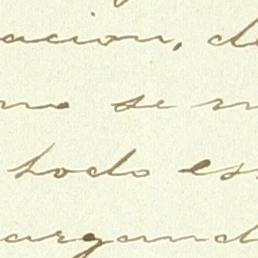 acion, de
no se m
todo es
argand